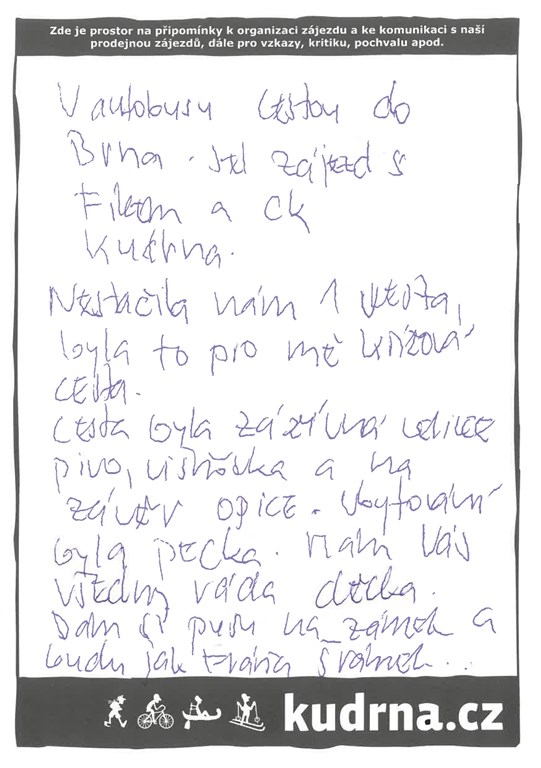 Zde je prostor na připomínky k organizaci zájezdu a ke komunikaci s naší
prodejnou zájezdů, dále pro vzkazy, kritiku, pochvalu apod.
V autobusu cestou do
Brna. zájezd s
Filem a ck
Kudrna.
Nestačila nám 1
byla to pro mě křížová
cesta.
cesta byla záživná
pivo, višňovka a na
závěr opice. Ubytování
byla pecka. Mám Vás
všechny ráda děcka.
Dám si pusu na zámek a
budu jak Fráňa Šrámek...
kudrna.cz